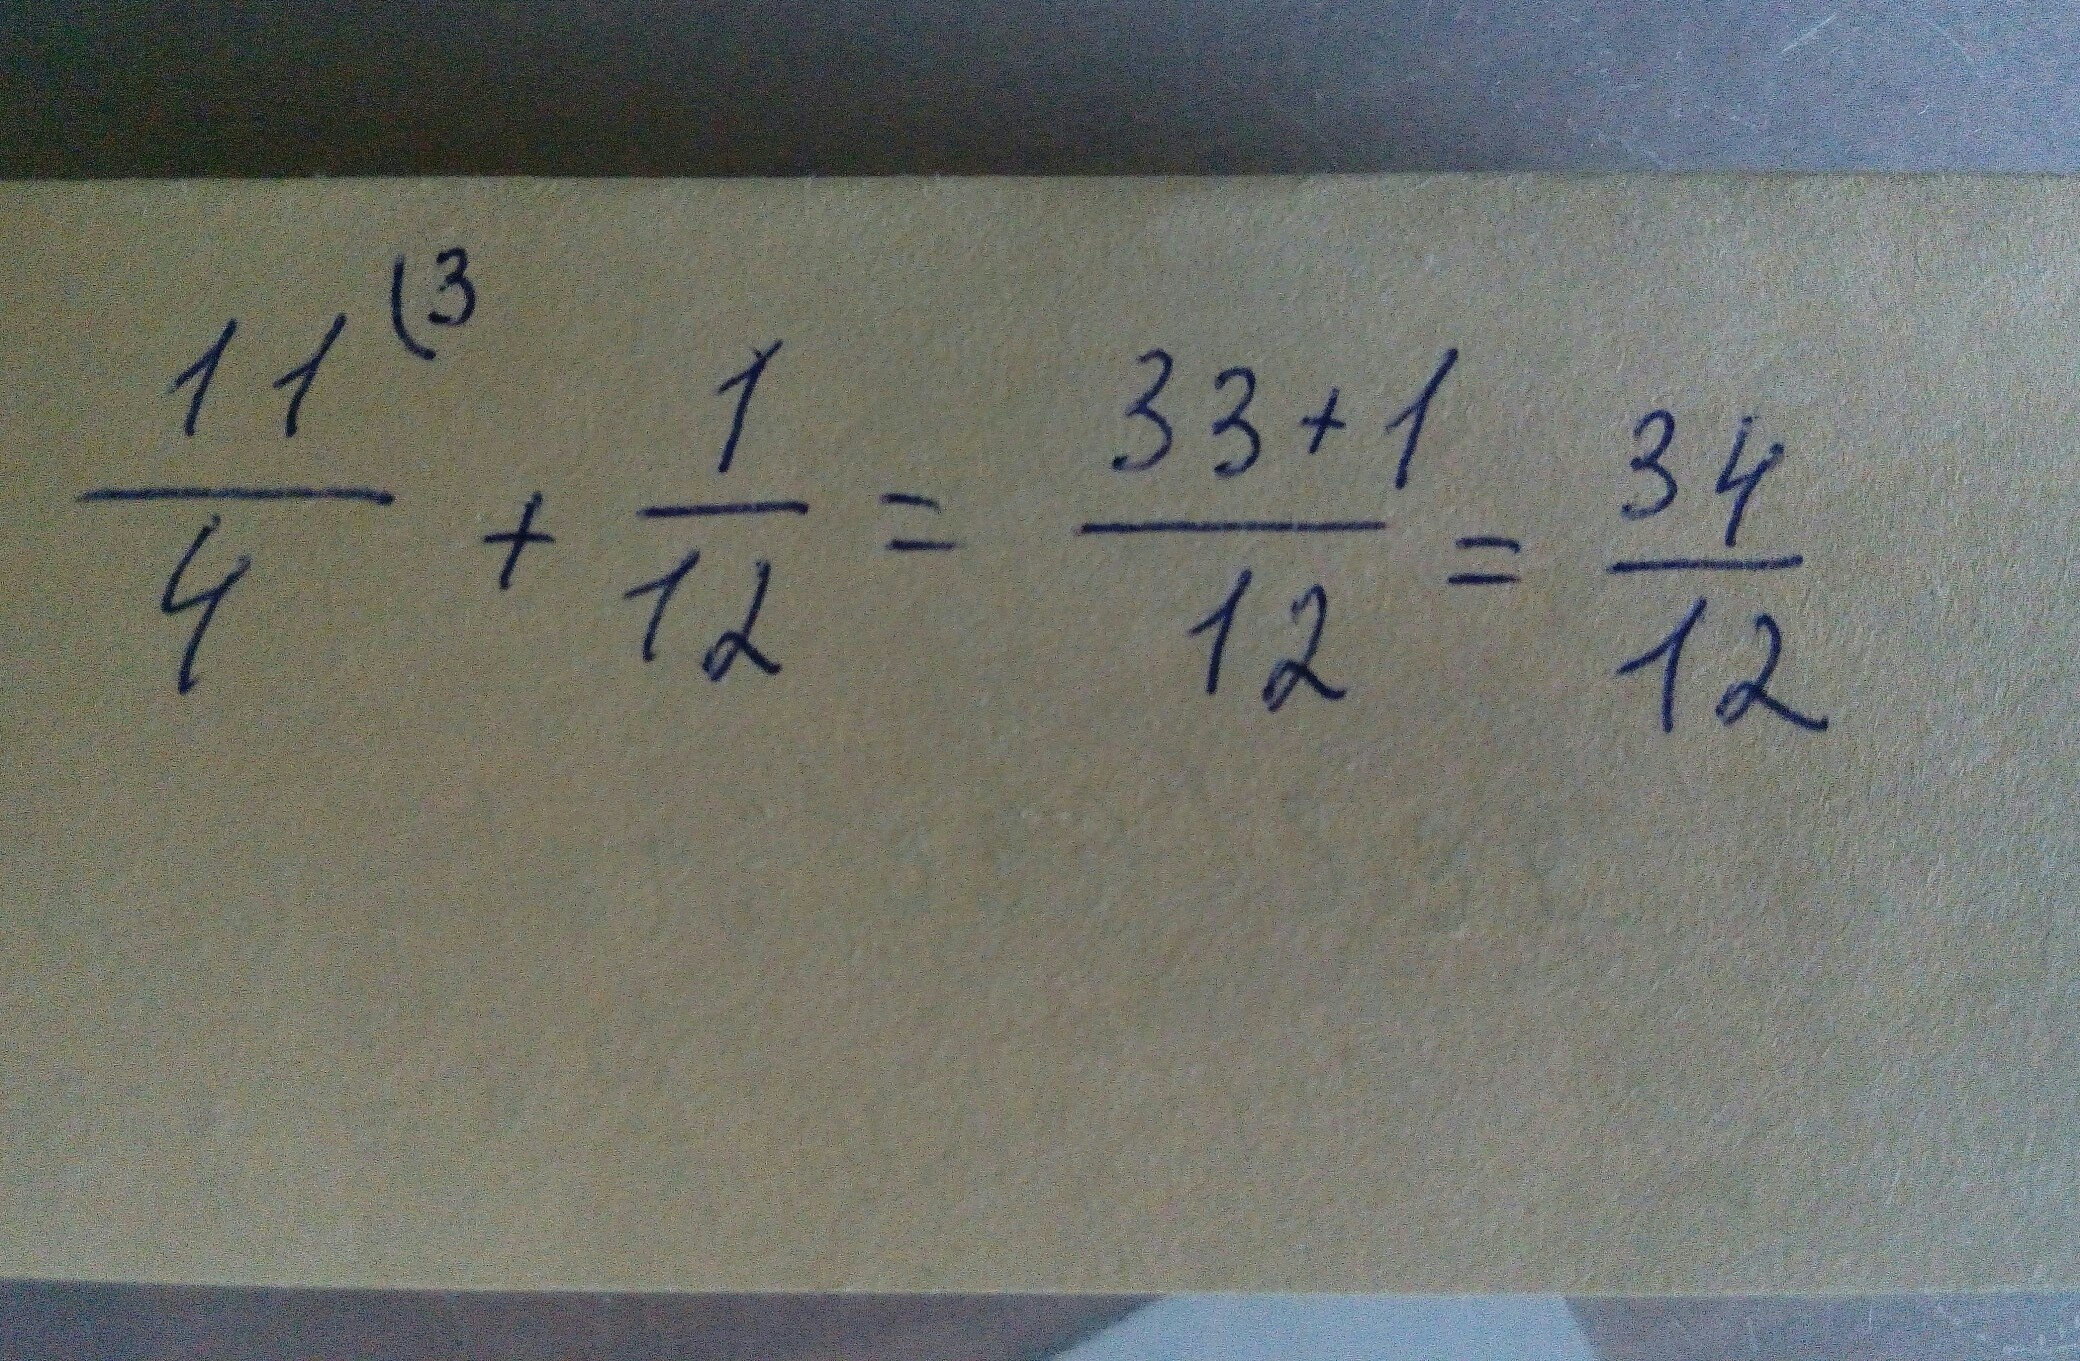 11/4 (3 + 1/12 = 33+1/12 = 34/12